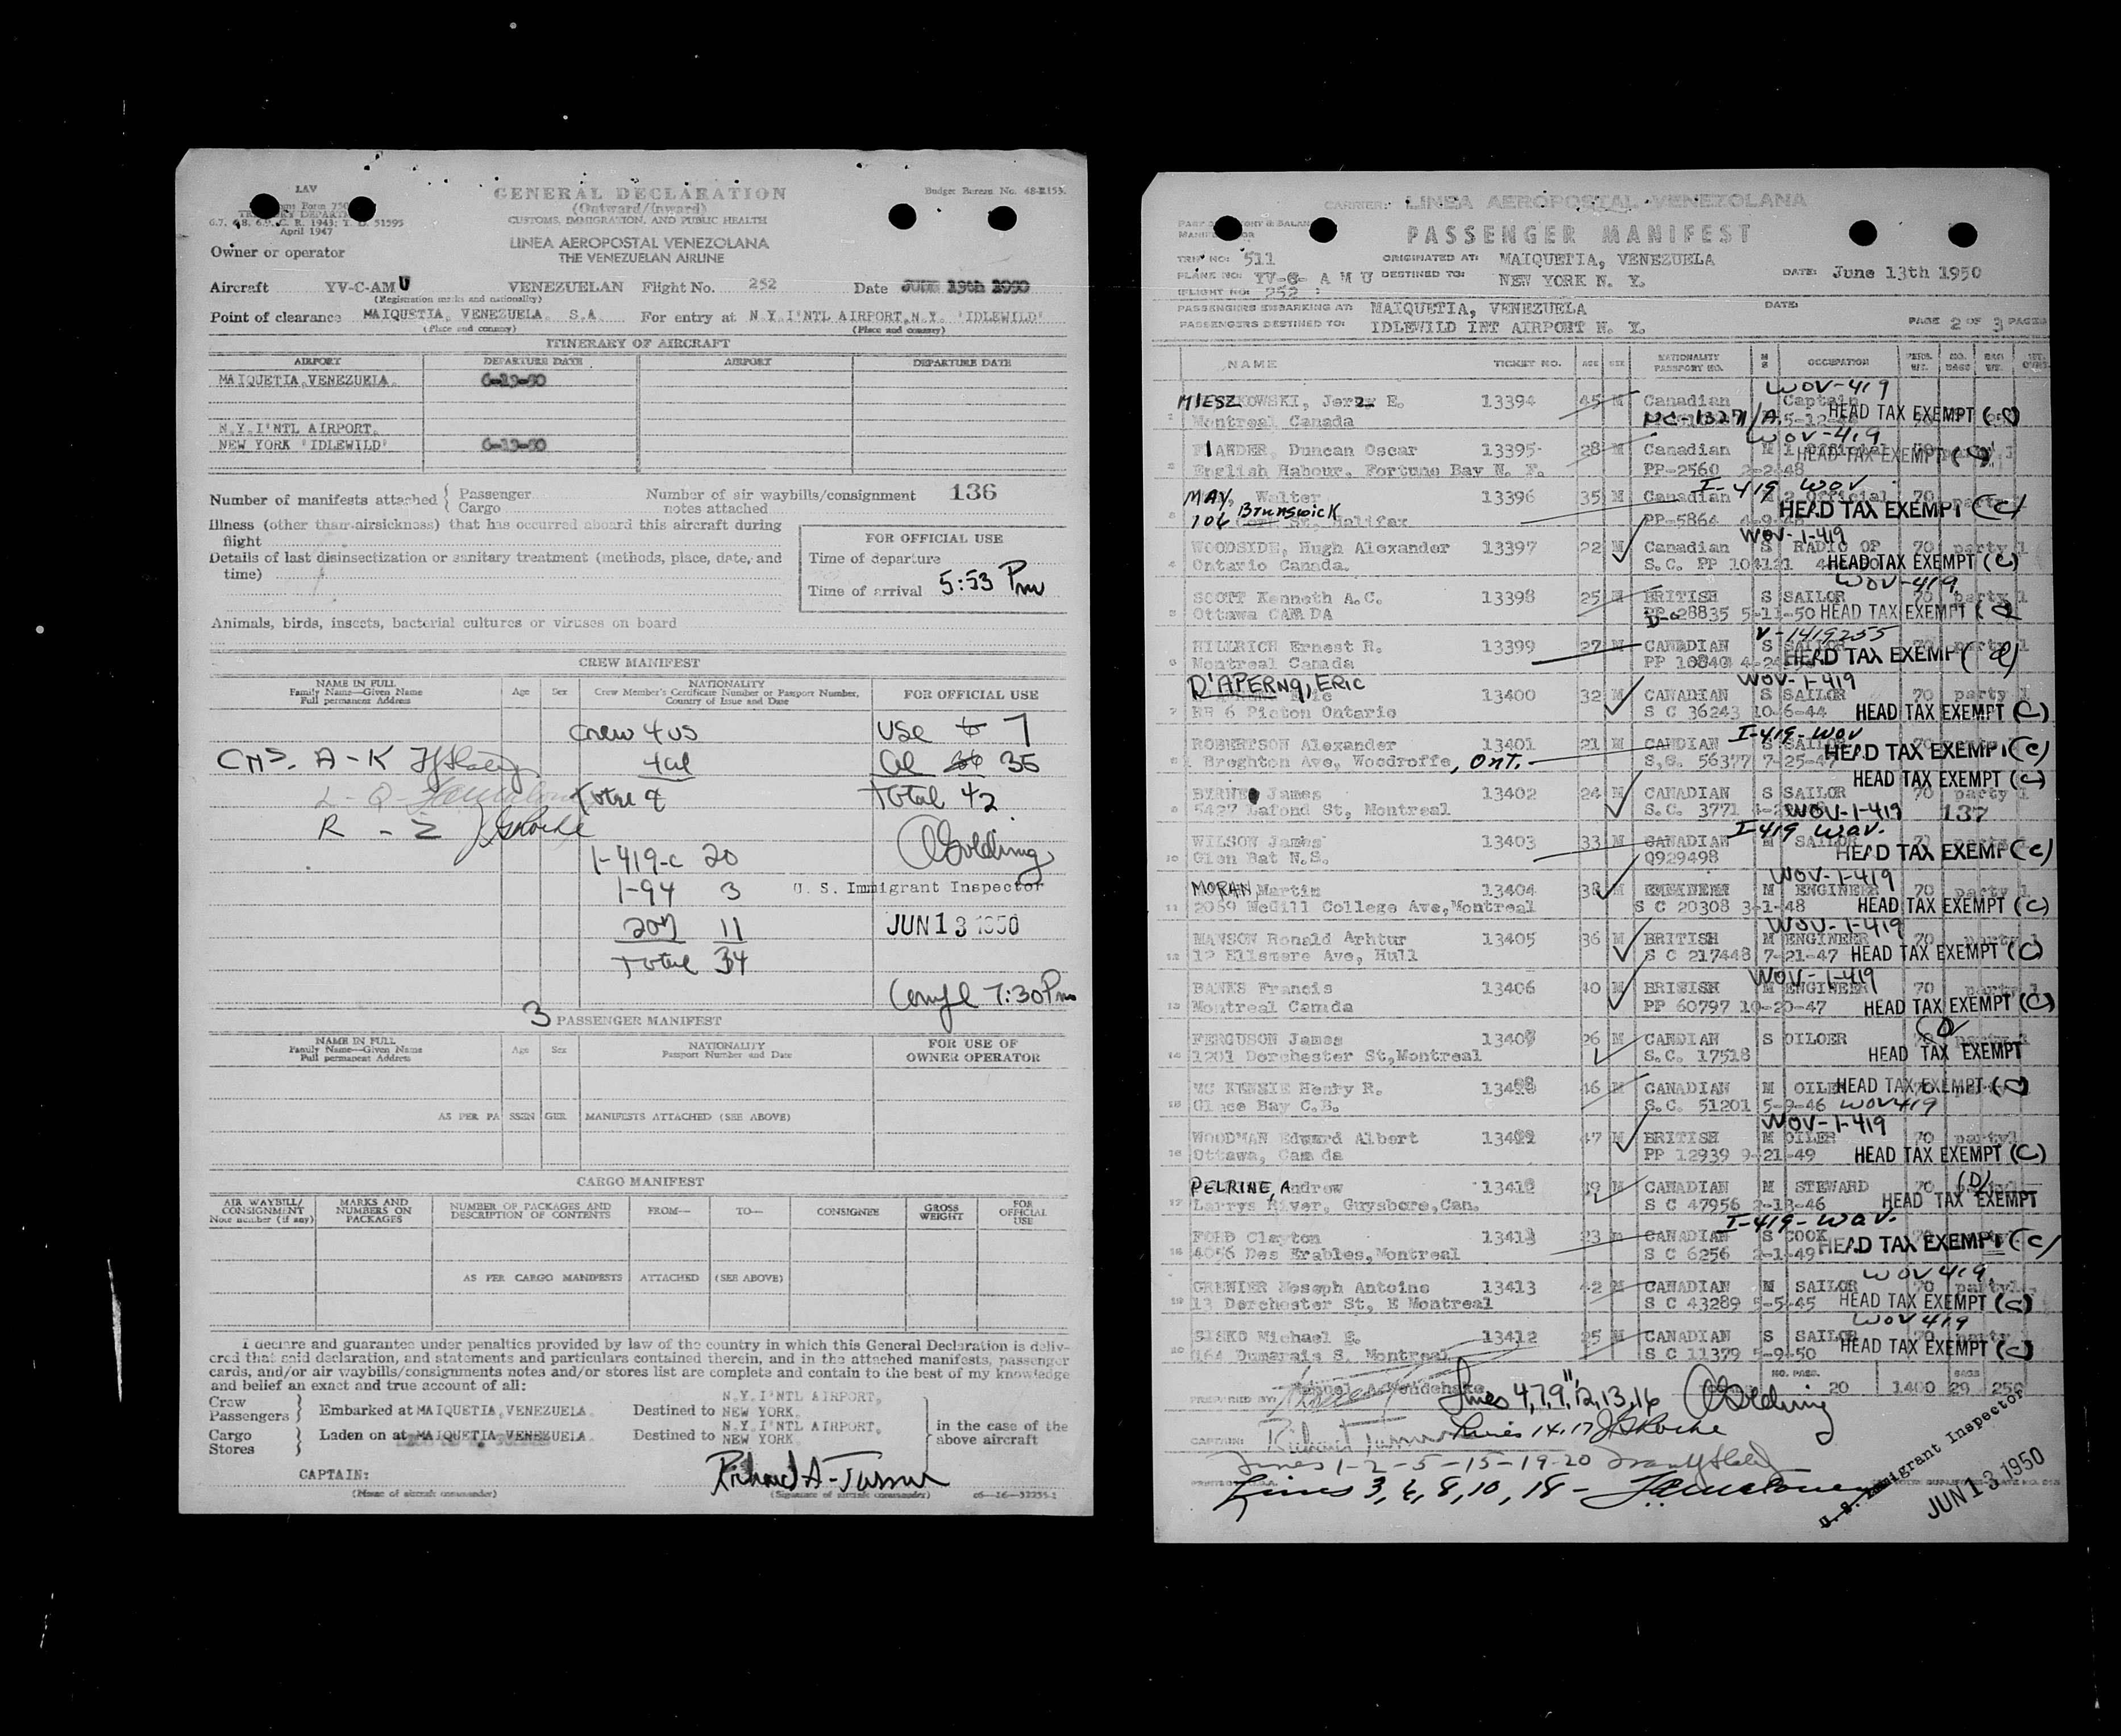 LAV
GENERAL DECLARATION
Budget Bureau No. 48-R153.
(Outward/Inward)
6.7, 4.8, 6.9, C. R. 1943; T. D. 51595
CUSTOMS, IMMIGRATION, AND PUBLIC HEALTH
April 1947
LINEA AEROPOSTAL VENEZOLANA
THE VENEZUELAN AIRLINE
Owner or operator
Aircraft YV-C-AMU VENEZUELAN Flight No. 252 Date JUNE 13th 1950
(Registration marks and nationality)
Point of clearance MAIQUETIA, VENEZUELA, S.A. For entry at N.Y.I'NTL AIRPORT,N.Y. 'IDLEWILD'
(Place and country) (Place and country)
ITINERARY OF AIRCRAFT
AIRPORT DEPARTURE DATE AIRPORT DEPARTURE DATE
MAIQUETIA,VENEZUELA. 6-13-50
N.Y.I'NTL AIRPORT.
NEW YORK 'IDLEWILD' 6-13-50
Number of manifests attached { Passenger Cargo
Number of air waybills/consignment notes attached 136
Illness (other than airsickness) that has occurred aboard this aircraft during flight
Details of last disinsectization or sanitary treatment (methods, place, date, and time)
FOR OFFICIAL USE
Time of departure
Time of arrival 5:53 Pm
Animals, birds, insects, bacterial cultures or viruses on board
CREW MANIFEST
NAME IN FULL
Family Name—Given Name
Full permanent Address
Age Sex
NATIONALITY
Crew Member's Certificate Number or Passport Number,
Country of Issue and Date
FOR OFFICIAL USE
Crew 4 US
USC 7
A - K
4 al
al 35
L - Q
Total 42
R - Z
1-419-C 20
1-94 3
U. S. Immigrant Inspector
207 11
JUN 13 1950
Total 34
7:30 Pm
3 PASSENGER MANIFEST
NAME IN FULL
Family Name—Given Name
Full permanent Address
Age Sex
NATIONALITY
Passport Number and Date
FOR USE OF
OWNER OPERATOR
AS PER PA SSEN GER MANIFESTS ATTACHED (SEE ABOVE)
CARGO MANIFEST
AIR WAYBILL/ CONSIGNMENT Note number (if any)
MARKS AND NUMBERS ON PACKAGES
NUMBER OF PACKAGES AND DESCRIPTION OF CONTENTS
FROM— TO— CONSIGNEE
GROSS WEIGHT
FOR OFFICIAL USE
AS PER CARGO MANIFESTS ATTACHED (SEE ABOVE)
I declare and guarantee under penalties provided by law of the country in which this General Declaration is deliv-
ered that said declaration, and statements and particulars contained therein, and in the attached manifests, passenger
cards, and/or air waybills/consignments notes and/or stores list are complete and contain to the best of my knowledge
and belief an exact and true account of all:
Crew Passengers } Embarked at MAIQUETIA,VENEZUELA. Destined to N.Y.I'NTL AIRPORT, NEW YORK.
Cargo Stores } Laden on at MAIQUETIA,VENEZUELA. Destined to N.Y.I'NTL AIRPORT, NEW YORK.
in the case of the above aircraft
CAPTAIN:
(Name of aircraft commander) (Signature of aircraft commander)
CARRIER: LINEA AEROPOSTAL VENEZOLANA
PASSENGER MANIFEST
TRIP NO: 511 ORIGINATED AT: MAIQUETIA, VENEZUELA
PLANE NO: YV-C- A M U DESTINED TO: NEW YORK N. Y. DATE: June 13th 1950
FLIGHT NO: 252
PASSENGERS EMBARKING AT: MAIQUETIA, VENEZUELA DATE:
PASSENGERS DESTINED TO: IDLEWILD INT AIRPORT N. Y. PAGE 2 OF 3 PAGES
NAME TICKET NO. AGE SEX NATIONALITY PASSPORT NO. M S OCCUPATION
WOV-419
MIESZKOWSKI, Jerz E. 13394 45 M Canadian Captain
1 Montreal Canada HEAD TAX EXEMPT (C)
WOV-419
ANDER, Duncan Oscar 13395 28 M Canadian M 1 Official
2 English Habour, Fortune Bay N. F. PP-2560 2-2-48 HEAD TAX EXEMPT
I-419 WOV
MAY, Walter 13396 35 M Canadian M 2 Official 70 party
3 104 Brunswick St, Halifax PP-5864 HEAD TAX EXEMPT (C)
WOV-1-419
WOODSIDE, Hugh Alexander 13397 22 M Canadian S RADIO OP 70 party 1
4 Ontario Canada. S.C. PP 104121 HEAD TAX EXEMPT (C)
WOV-419
SCOTT Kenneth A.C. 13398 25 M BRITISH S SAILOR 70 party 1
5 Ottawa CANADA 28835 5-11-50 HEAD TAX EXEMPT
V-1419255
HILLRICH Ernest R. 13399 27 M CANADIAN S SAILOR
6 Montreal Canada PP 10840 HEAD TAX EXEMPT
D'APERNG, ERIC WOV-1-419
13400 32 M CANADIAN S SAILOR 70 party 1
7 RR 6 Picton Ontario S C 36243 10-6-44 HEAD TAX EXEMPT (C)
I-419-WOV
ROBERTSON Alexander 13401 21 M CANDIAN S SAILOR
8 Breghton Ave, Woodroffe, ONT. S.C. 56377 7-25-47 HEAD TAX EXEMPT (C)
HEAD TAX EXEMPT (C)
BIRNE James 13402 24 M CANADIAN S SAILOR 70 party 1
9 5427 Lafond St, Montreal S.C. 3771 WOV-1-419 137
I-419 WOV.
WILSON James 13403 33 M CANADIAN M SAILOR
10 Glen Bat N.S. Q929498 HEAD TAX EXEMPT (C)
WOV-1-419
MORAN, Martin 13404 38 M M ENGINEER 70 party 1
11 2069 McGill College Ave,Montreal S C 20308 3-1-48 HEAD TAX EXEMPT (C)
WOV-1-419
MANSON Ronald Arhtur 13405 36 M BRITISH M ENGINEER 70
12 12 Ellsmere Ave, Hull S C 217448 7-21-47 HEAD TAX EXEMPT (C)
WOV-1-419
BANKS Francis 13406 40 M BRITISH M ENGINEER 70 party 1
13 Montreal Canada PP 60797 10-20-47 HEAD TAX EXEMPT (C)
FERGUSON James 1340 26 M CANDIAN S OILOER
14 1201 Dorchester St,Montreal S.C. 17518 HEAD TAX EXEMPT
MC KENSIE Henry R. 46 M CANADIAN M OILER HEAD TAX EXEMPT (C)
15 Glace Bay C.B. S.C. 51201 5-9-46 WOV419
WOV-1-419
WOODMAN Edward Albert 47 M BRITISH M OILER 70 party1
16 Ottawa, Canada PP 12939 9-21-49 HEAD TAX EXEMPT (C)
PELRINE, Andrew 39 M CANADIAN M STEWARD 70 (D)
17 Larrys River, Guysbore,Can. S C 47956 2-18-46 HEAD TAX EXEMPT
I-419-WOV.
FORD Clayton 23 m CANADIAN S COOK
18 4056 Des Erables,Montreal S C 6256 2-1-49 HEAD TAX EXEMPT (C)
WOV419
GRENIER Joseph Antoine 13413 42 M CANADIAN M SAILOR 70 party1
19 13 Dorchester St, E Montreal S C 43289 5-5-45 HEAD TAX EXEMPT (C)
WOV419
SISKO Michael E. 13412 25 M CANADIAN S SAILOR 70 party
20 164 Dumarais S. Montreal S C 11379 5-9-50 HEAD TAX EXEMPT (C)
NO. PASS. 20 1400 29
PREPARED BY: Lines 4,7,9,11,12,13,16
CAPTAIN: Lines 14.17
Lines 1-2-5-15-19-20
Lines 3, 6, 8, 10, 18 -
U. S. Immigrant Inspector
JUN 13 1950